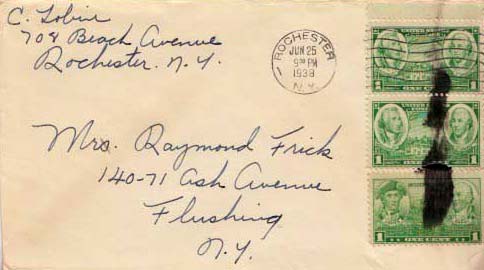 C. Lobin
708 Beach Avenue
Rochester. N.Y.
ROCHESTER
JUN 25
9 30 PM
1938
N.Y.
Mrs. Raymond Frick
140-71 Ash Avenue
Flushing
N.Y.
1 1
ONE CENT
1 1
ONE CENT
1 1
ONE CENT